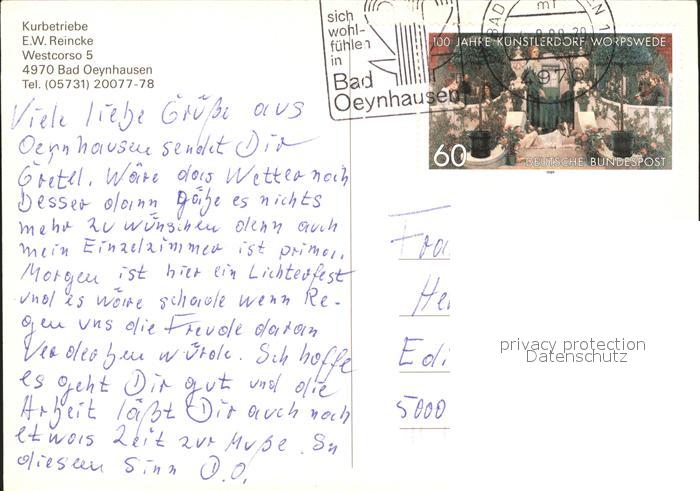 Kurbetriebe
E.W. Reincke
Westcorso 5
4970 Bad Oeynhausen
Tel. (05731) 20077-78
sich
wohl-
fühlen
in
Bad
Oeynhausen
BAD
1
4970
100 JAHRE KÜNSTLERDORF WORPSWEDE
60
DEUTSCHE BUNDESPOST
1989
Viele liebe Grüße aus
Oeynhausen sendet Dir
Gretel. Wäre das Wetter noch
besser dann gäbe es nichts
mehr zu wünschen denn auch
mein Einzelzimmer ist prima.
Morgen ist hier ein Lichterfest
und es wäre schade wenn Re-
gen uns die Freude daran
verderben würde. Ich hoffe
es geht Dir gut und die
Arbeit läßt Dir auch noch
etwas Zeit zur Muße. In
diesem Sinn D.O.
Fra
He
Edi
5000
privacy protection
Datenschutz